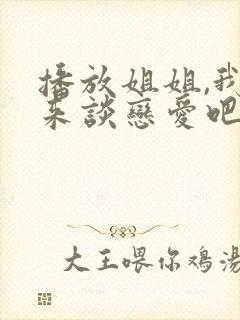 播放姐姐,我
来談戀愛吧
大王喂你鸡湯